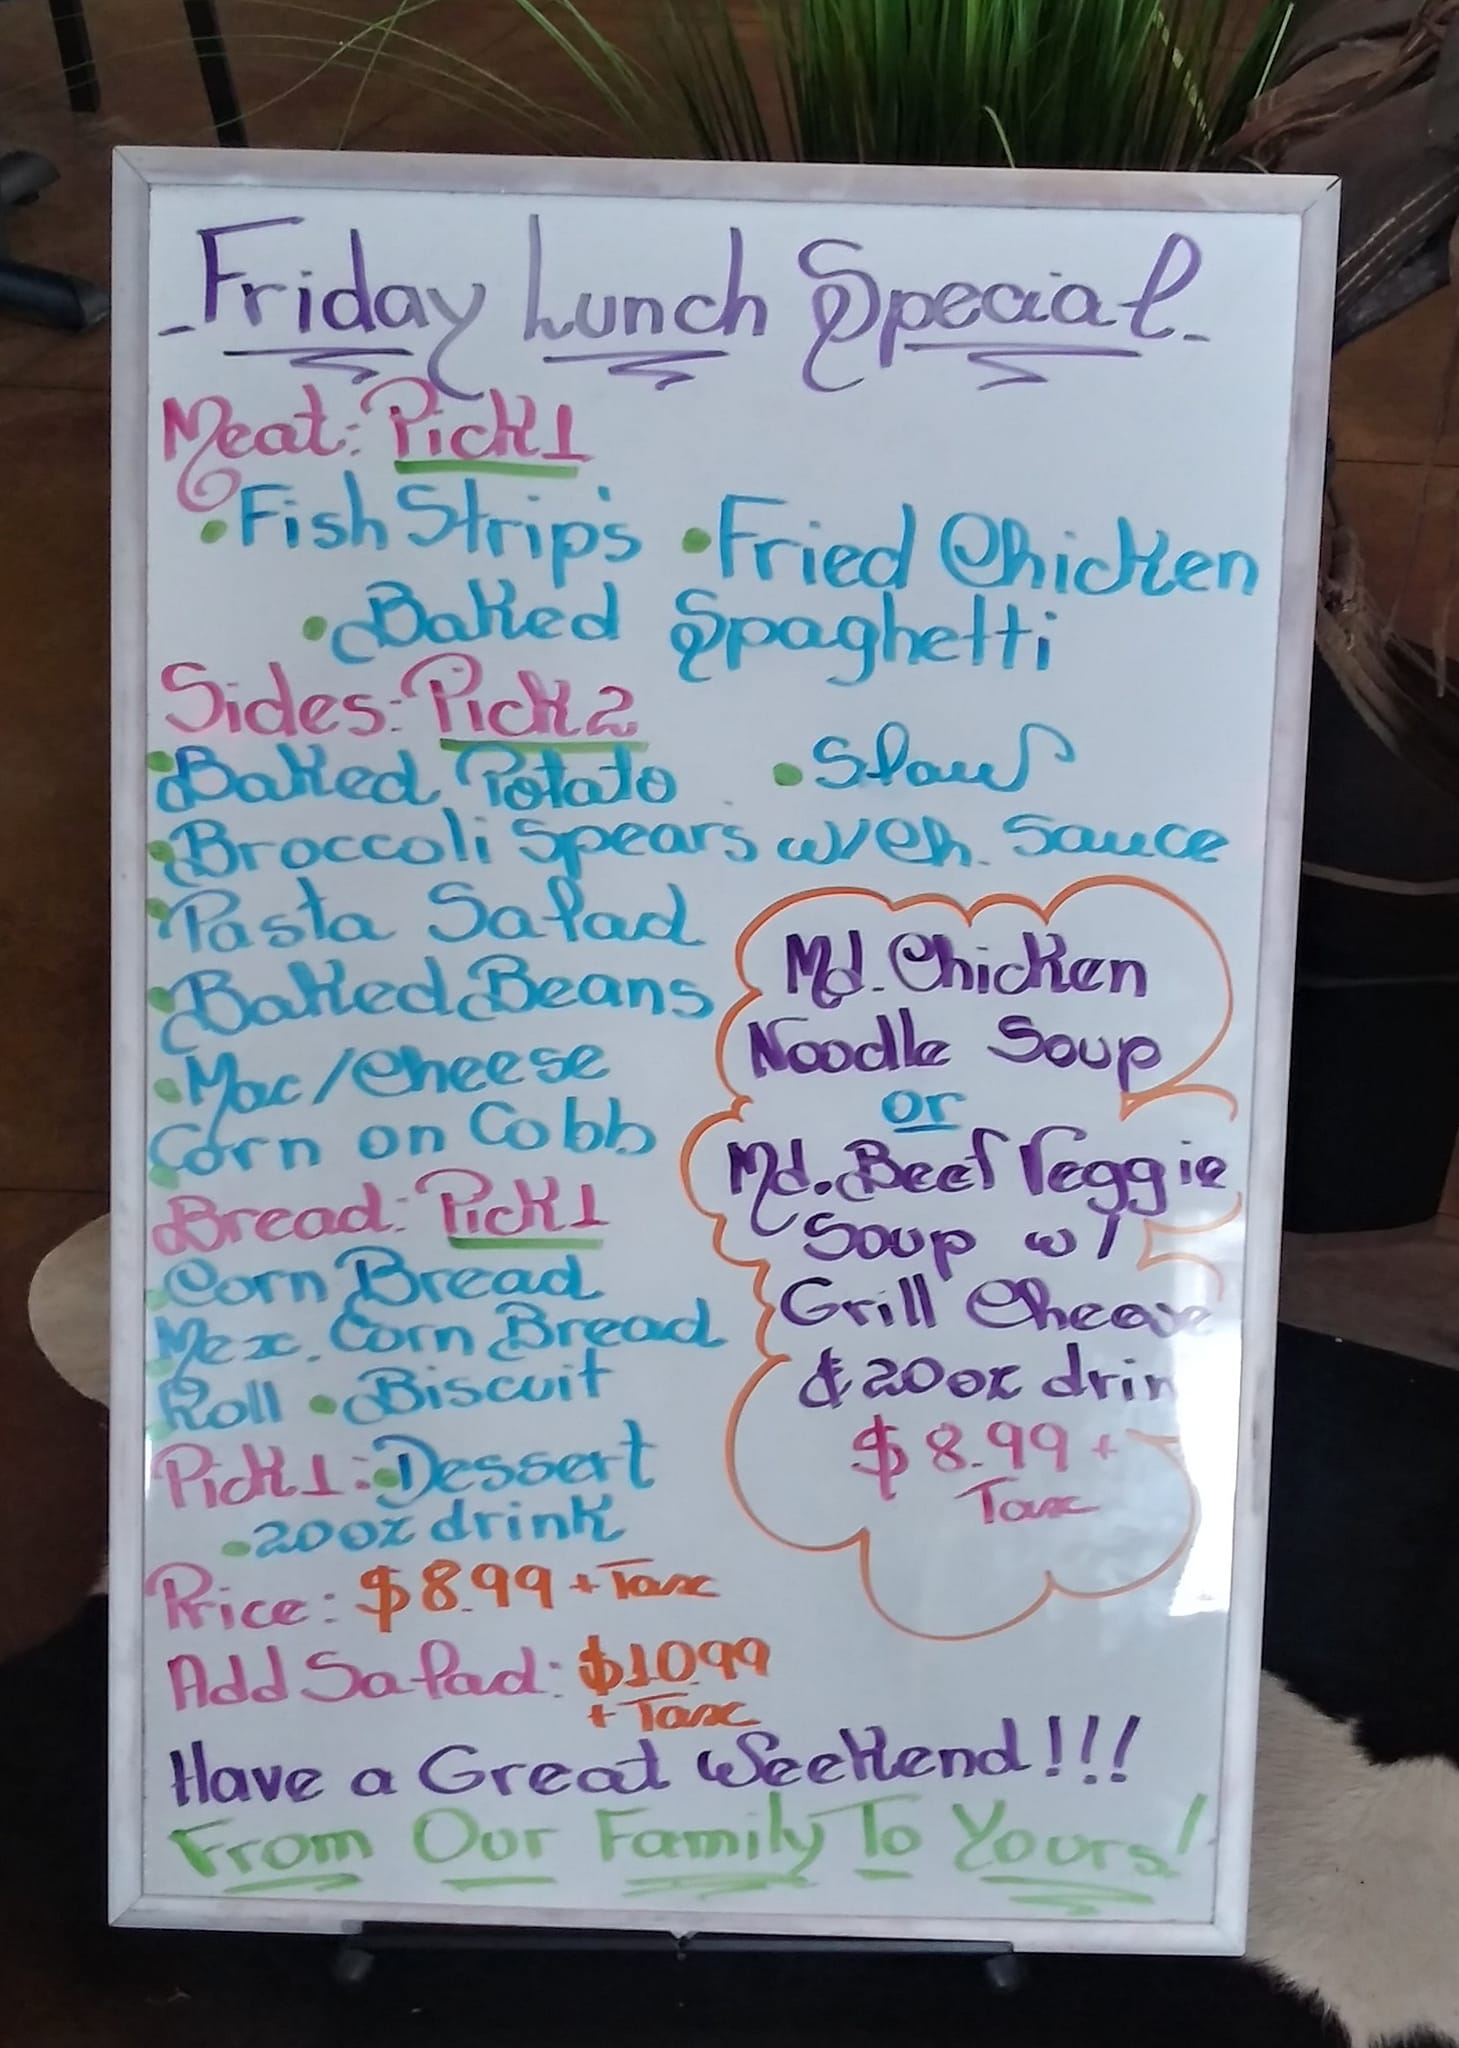 -Friday Lunch Special-
Meat: Pick 1
• Fish Strip's • Fried Chicken
• Baked Spaghetti
Sides: Pick 2
• Baked Potato • Slaw
• Broccoli Spears w/ Ch. Sauce
• Pasta Salad
• Baked Beans
• Mac/Cheese
• Corn on Cobb
Bread: Pick 1
• Corn Bread
• Mex. Corn Bread
• Roll • Biscuit
Pick 1: • Dessert
• 20oz drink
Price: $8.99 + Tax
Add Salad: $10.99
+ Tax
Md. Chicken
Noodle Soup
or
Md. Beef Veggie
Soup w/
Grill Cheese
& 20oz drin
$8.99 +
Tax
Have a Great Weekend!!!
From Our Family To Yours!